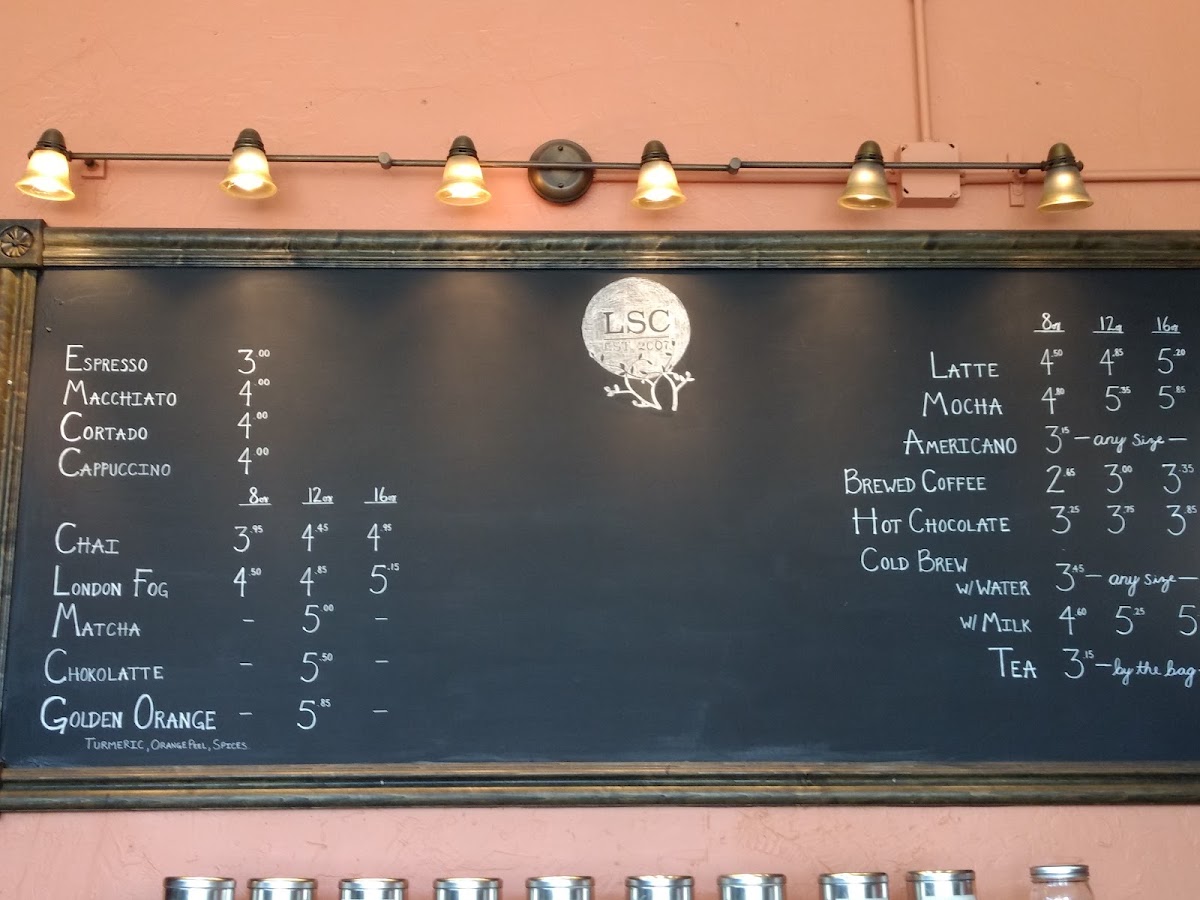 LSC
EST. 2007
Espresso 3.00
Macchiato 4.00
Cortado 4.00
Cappuccino 4.00
8oz 12oz 16oz
Chai 3.95 4.45 4.95
London Fog 4.50 4.85 5.15
Matcha - 5.00 -
Chokolatte - 5.50 -
Golden Orange - 5.85 -
Turmeric, Orange Peel, Spices
8oz 12oz 16oz
Latte 4.50 4.85 5.20
Mocha 4.80 5.35 5.85
Americano 3.15 - any size -
Brewed Coffee 2.65 3.00 3.35
Hot Chocolate 3.25 3.75 3.85
Cold Brew
w/ Water 3.45 - any size -
w/ Milk 4.60 5.25 5
Tea 3.15 - by the bag -